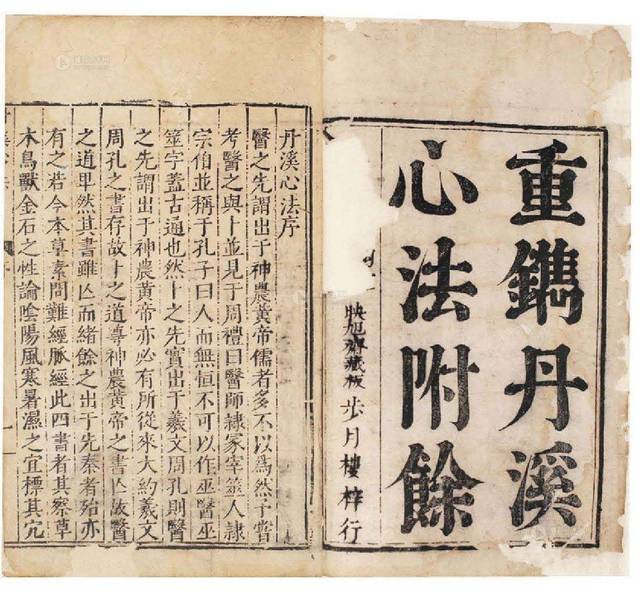 重鐫丹溪
心法附餘
映旭齋藏板 步月樓梓行
丹溪心法序
醫之先謂出于神農黃帝儒者多不以為然予嘗
考醫之與卜並見于周禮曰醫師隸冢宰筮人隸
宗伯並稱于孔子曰人而無恒不可以作巫醫巫
筮字蓋古通也然卜之先實出于羲文周孔則醫
之先謂出于神農黃帝亦必有所從來大約羲文
周孔之書存故卜之道尊神農黃帝之書亾故醫
之道卑然其書雖亾而緒餘之出于先秦者殆亦
有之若今本草素問難經脈經此四書者其察草
木鳥獸金石之性論陰陽風寒暑濕之宜標其穴